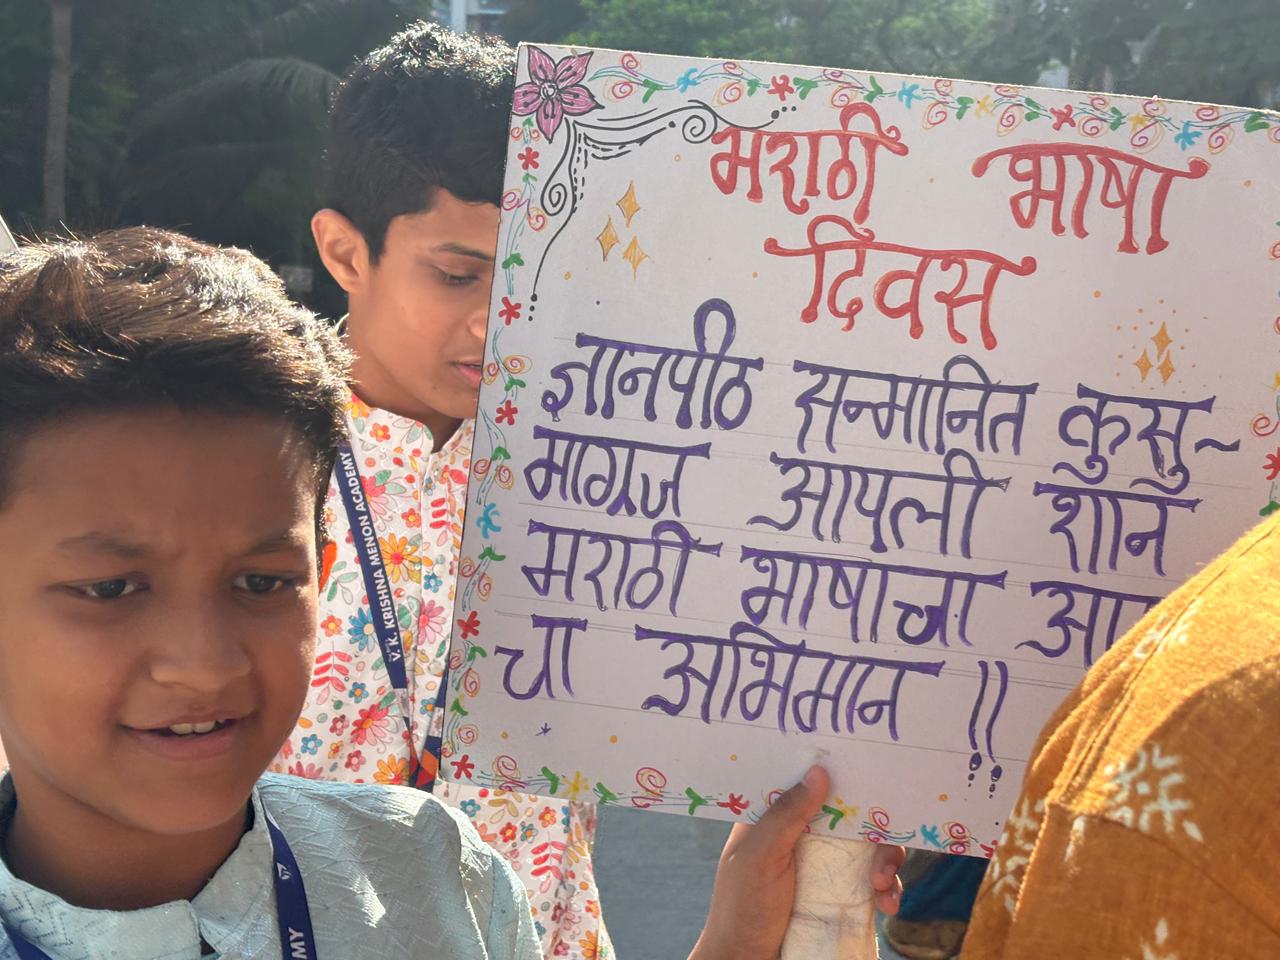 मराठी भाषा
दिवस
ज्ञानपीठ सन्मानित कुसु-
माग्रज आपली शान
मराठी भाषाचा
चा अभिमान !!
V. K. KRISHNA MENON ACADEMY